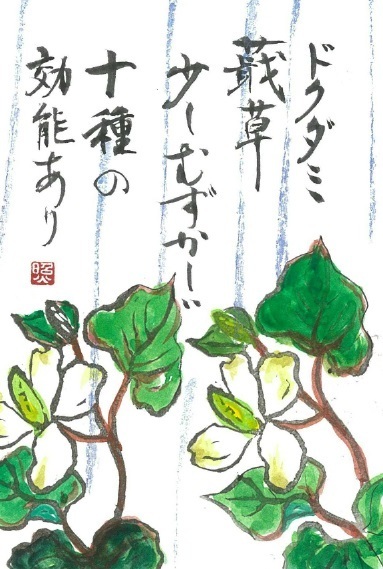 ドクダミ
蕺草
少しむずかしい
十種の
効能あり
昭